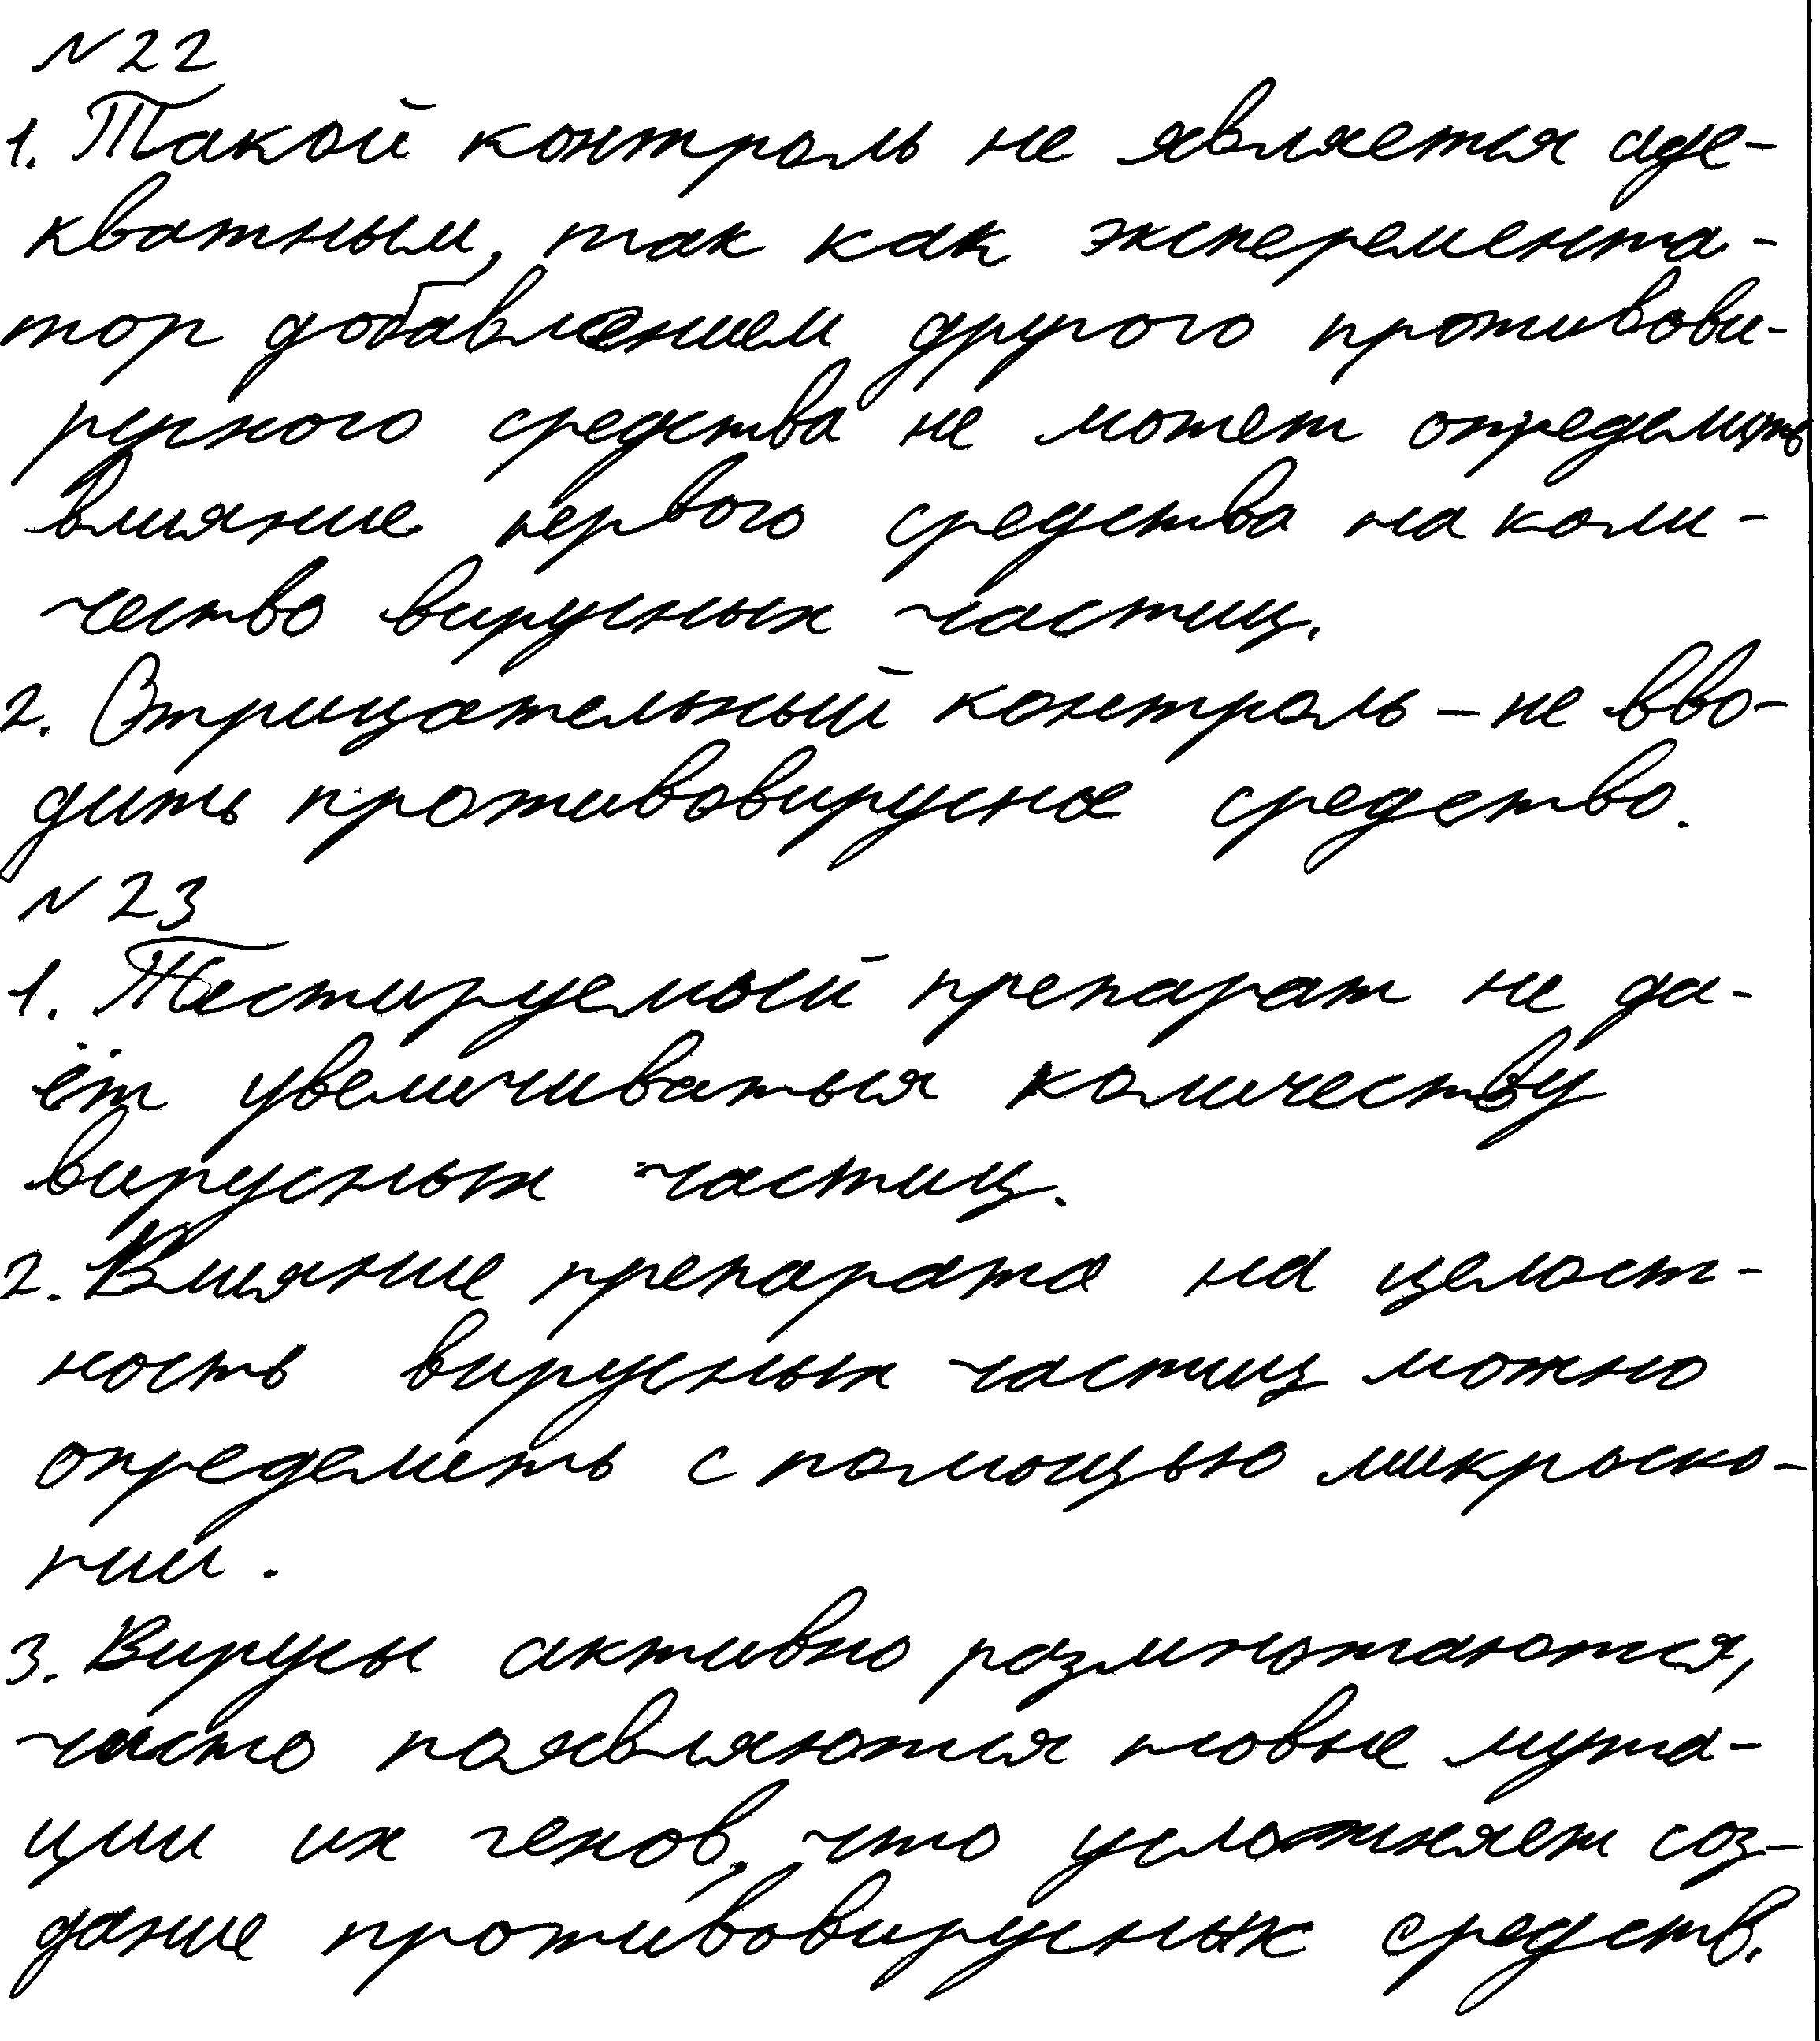 №22
1. Такой контроль не является аде-
кватным, так как эксперемента-
тор добавлением другого противови-
русного средства не может определить
влияние первого средства на коли-
чество вирусных частиц.
2. Отрицательный контроль – не вво-
дить противовирусное средство.
№23
1. Тестируемый препарат не да-
ёт увеличиваться количеству
вирусных частиц.
2. Влияние препарата на целост-
ность вирусных частиц можно
определить с помощью микроско-
пии.
3. Вирусы активно размножаются,
часто появляются новые мута-
ции их генов, что усложняет соз-
дание противовирусных средств.